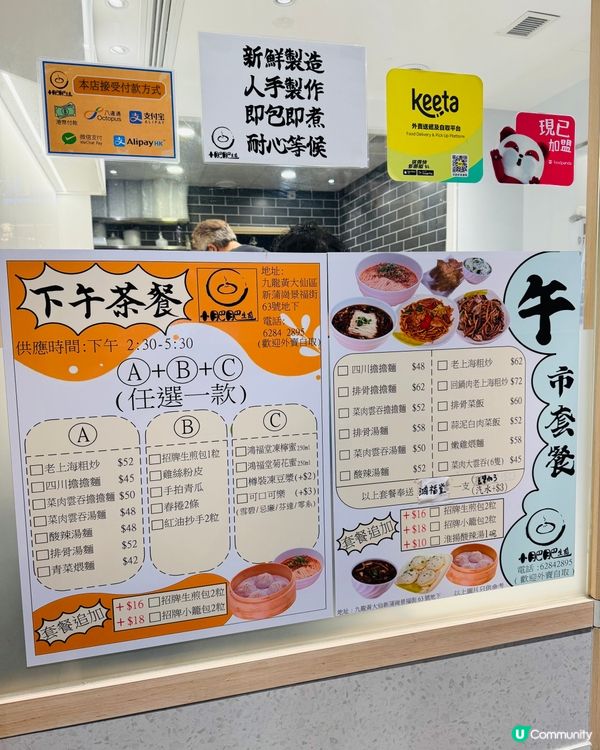 本店接受付款方式
港幣付款
八達通
Octopus
支付宝
ALIPAY
微信支付
WeChat Pay
AlipayHK
新鮮製造
人手製作
即包即煮
耐心等候
keeta
外賣送遞及自取平台
Food Delivery & Pick Up Platform
現已
加盟
foodpanda
下午茶餐
供應時間:下午 2:30-5:30
地址:
九龍黃大仙區
新蒲崗景福街
63號地下
電話:
6284 2895
(歡迎外賣自取)
Ⓐ+Ⓑ+Ⓒ
(任選一款)
Ⓐ
老上海粗炒 $52
四川擔擔麵 $45
菜肉雲吞擔擔麵 $50
菜肉雲吞湯麵 $48
酸辣湯麵 $48
排骨湯麵 $52
青菜煨麵 $42
Ⓑ
招牌生煎包1粒
雞絲粉皮
手拍青瓜
春捲2條
紅油抄手2粒
Ⓒ
鴻福堂凍檸蜜250ml
鴻福堂菊花蜜250ml
樽裝凍豆漿 (+$2)
可口可樂 (+$3)
(雪碧/忌廉/芬達/零系)
套餐追加
+$16 招牌生煎包2粒
+$18 招牌小籠包2粒
午
市套餐
四川擔擔麵 $48
排骨擔擔麵 $62
菜肉雲吞擔擔麵 $52
排骨湯麵 $58
菜肉雲吞湯麵 $50
酸辣湯麵 $52
老上海粗炒 $62
回鍋肉老上海粗炒 $72
排骨菜飯 $60
蒜泥白肉菜飯 $52
嫩雞煨麵 $58
菜肉大雲吞(6隻) $45
以上套餐奉送 鴻福堂 一支 (汽水+$3)
套餐追加
+$16 招牌生煎包2粒
+$18 招牌小籠包2粒
+$10 淮揚酸辣湯1碗
電話:62842895
(歡迎外賣自取)
地址:九龍黃大仙新蒲崗景福街63號地下
以上圖片只供參考
U Community